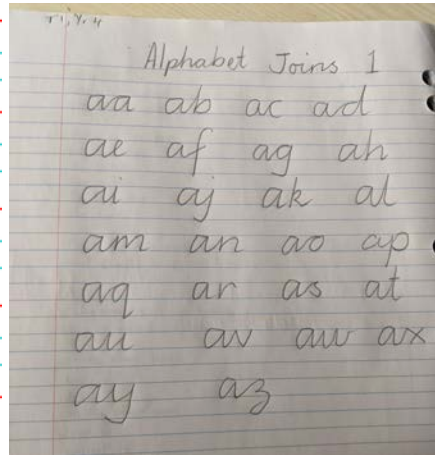 Alphabet Joins 1
aa ab ac ad
ae af ag ah
ai aj ak al
am an ao ap
aq ar as at
au av aw ax
ay az